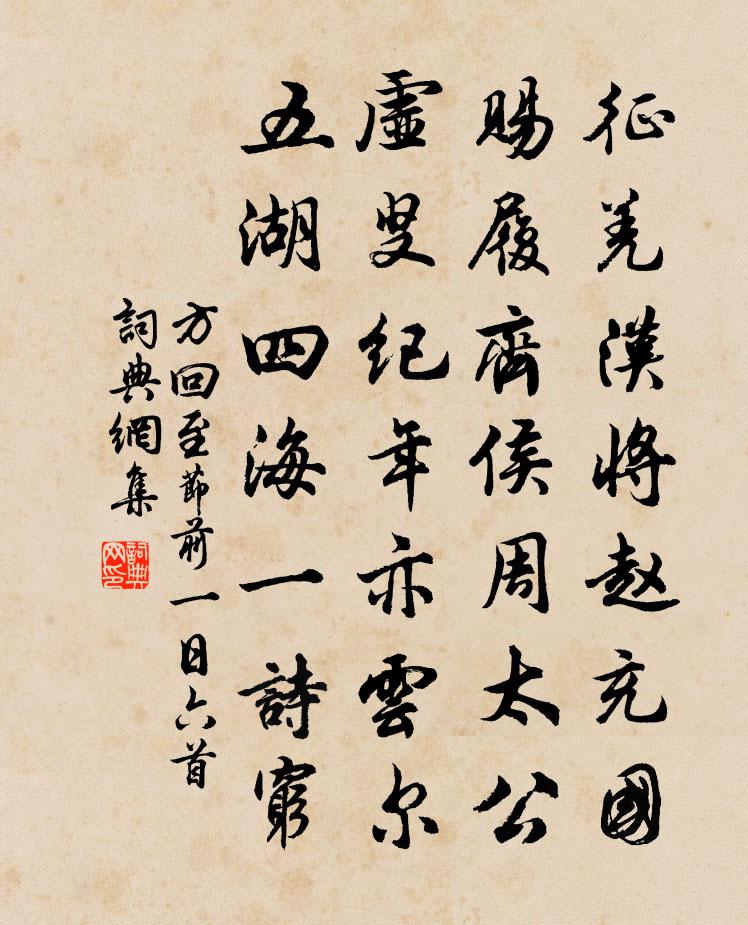 征羌漢將赵充國
賜履齊侯周太公
虛叟紀年亦雲尔
五湖四海一詩窮
方回至節前一日六首
詞典網集
詞典网印